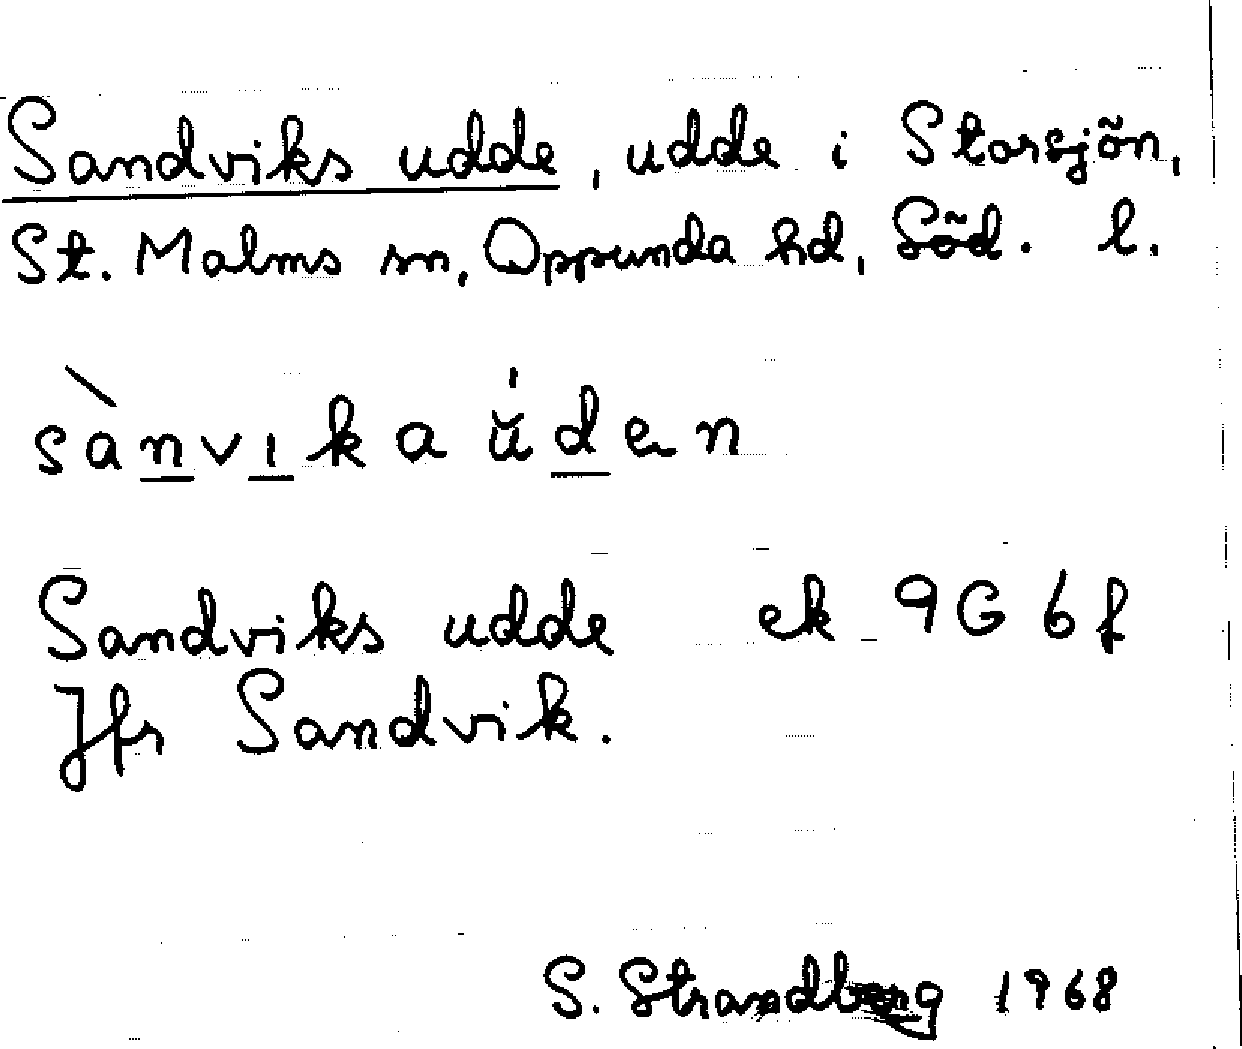 Sandviks udde, udde i Storsjön,
St. Malms sn, Oppunda hd, Söd. l.
sànvıkaŭ́den
Sandviks udde ek 9G 6f
Jfr Sandvik.
S. Strandberg 1968